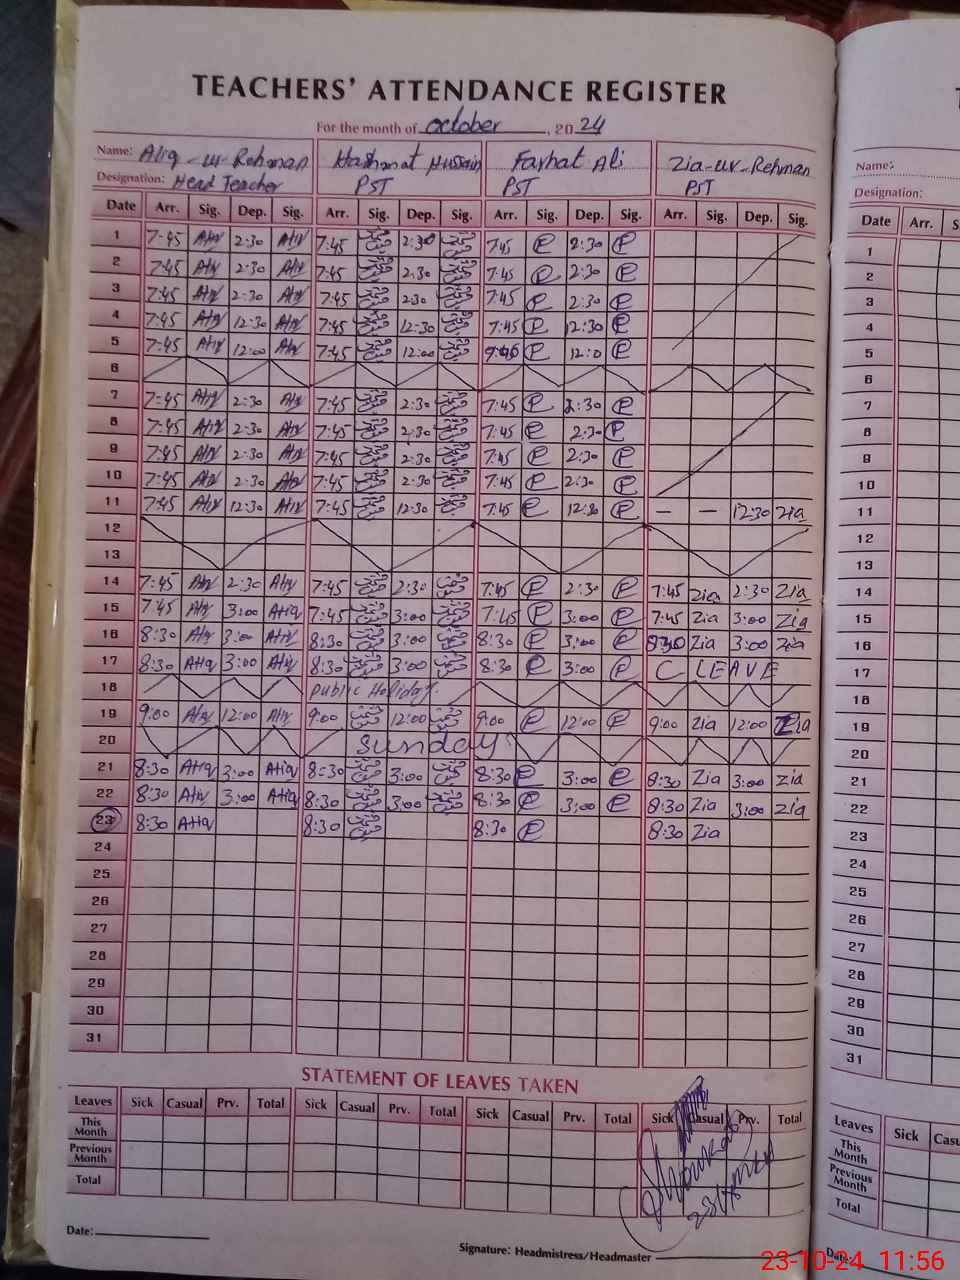 TEACHERS' ATTENDANCE REGISTER
For the month of october, 2024
Name: Atiq-ur-Rehman Hashmat Hussain Farhat Ali Zia-ur-Rehman
Designation: Head Teacher PST PST PST
Date Arr. Sig. Dep. Sig. Arr. Sig. Dep. Sig. Arr. Sig. Dep. Sig. Arr. Sig. Dep. Sig.
1 7-45 Atiq 2:30 Atiq 7:45 2:30 7:45 P 2:30 P
2 7:45 Atiq 2:30 Atiq 7:45 2:30 7:45 P 2:30 P
3 7:45 Atiq 2:30 Atiq 7:45 2:30 7:45 P 2:30 P
4 7:45 Atiq 12:30 Atiq 7:45 12:30 7:45 P 12:30 P
5 7:45 Atiq 12:00 Atiq 7:45 12:00 7:45 P 12:0 P
6
7 7:45 Atiq 2:30 Atiq 7:45 2:30 7:45 P 2:30 P
8 7:45 Atiq 2:30 Atiq 7:45 2:30 7:45 P 2:30 P
9 7:45 Atiq 2:30 Atiq 7:45 2:30 7:45 P 2:30 P
10 7:45 Atiq 2:30 Atiq 7:45 2:30 7:45 P 2:30 P
11 7:45 Atiq 12:30 Atiq 7:45 12:30 7:45 P 12:30 P — — 12:30 Zia
12
13
14 7:45 Atiq 2:30 Atiq 7:45 2:30 7:45 P 2:30 P 7:45 Zia 2:30 Zia
15 7:45 Atiq 3:00 Atiq 7:45 3:00 7:45 P 3:00 P 7:45 Zia 3:00 Zia
16 8:30 Atiq 3:00 Atiq 8:30 3:00 8:30 P 3:00 P 8:30 Zia 3:00 Zia
17 8:30 Atiq 3:00 Atiq 8:30 3:00 8:30 P 3:00 P C LEAVE
18 public Holiday.
19 9:00 Atiq 12:00 Atiq 9:00 12:00 9:00 P 12:00 P 9:00 Zia 12:00 Zia
20 Sunday
21 8:30 Atiq 3:00 Atiq 8:30 3:00 8:30 P 3:00 P 8:30 Zia 3:00 Zia
22 8:30 Atiq 3:00 Atiq 8:30 3:00 8:30 P 3:00 P 8:30 Zia 3:00 Zia
23 8:30 Atiq 8:30 8:30 P 8:30 Zia
24
25
26
27
28
29
30
31
STATEMENT OF LEAVES TAKEN
Leaves Sick Casual Prv. Total Sick Casual Prv. Total Sick Casual Prv. Total Sick Casual Prv. Total
This Month
Previous Month
Total
Date:
Signature: Headmistress/Headmaster
Name:
Designation:
Date Arr.
1
2
3
4
5
6
7
8
9
10
11
12
13
14
15
16
17
18
19
20
21
22
23
24
25
26
27
28
29
30
31
Leaves Sick
This Month
Previous Month
Total
Date:
23-10-24 11:56